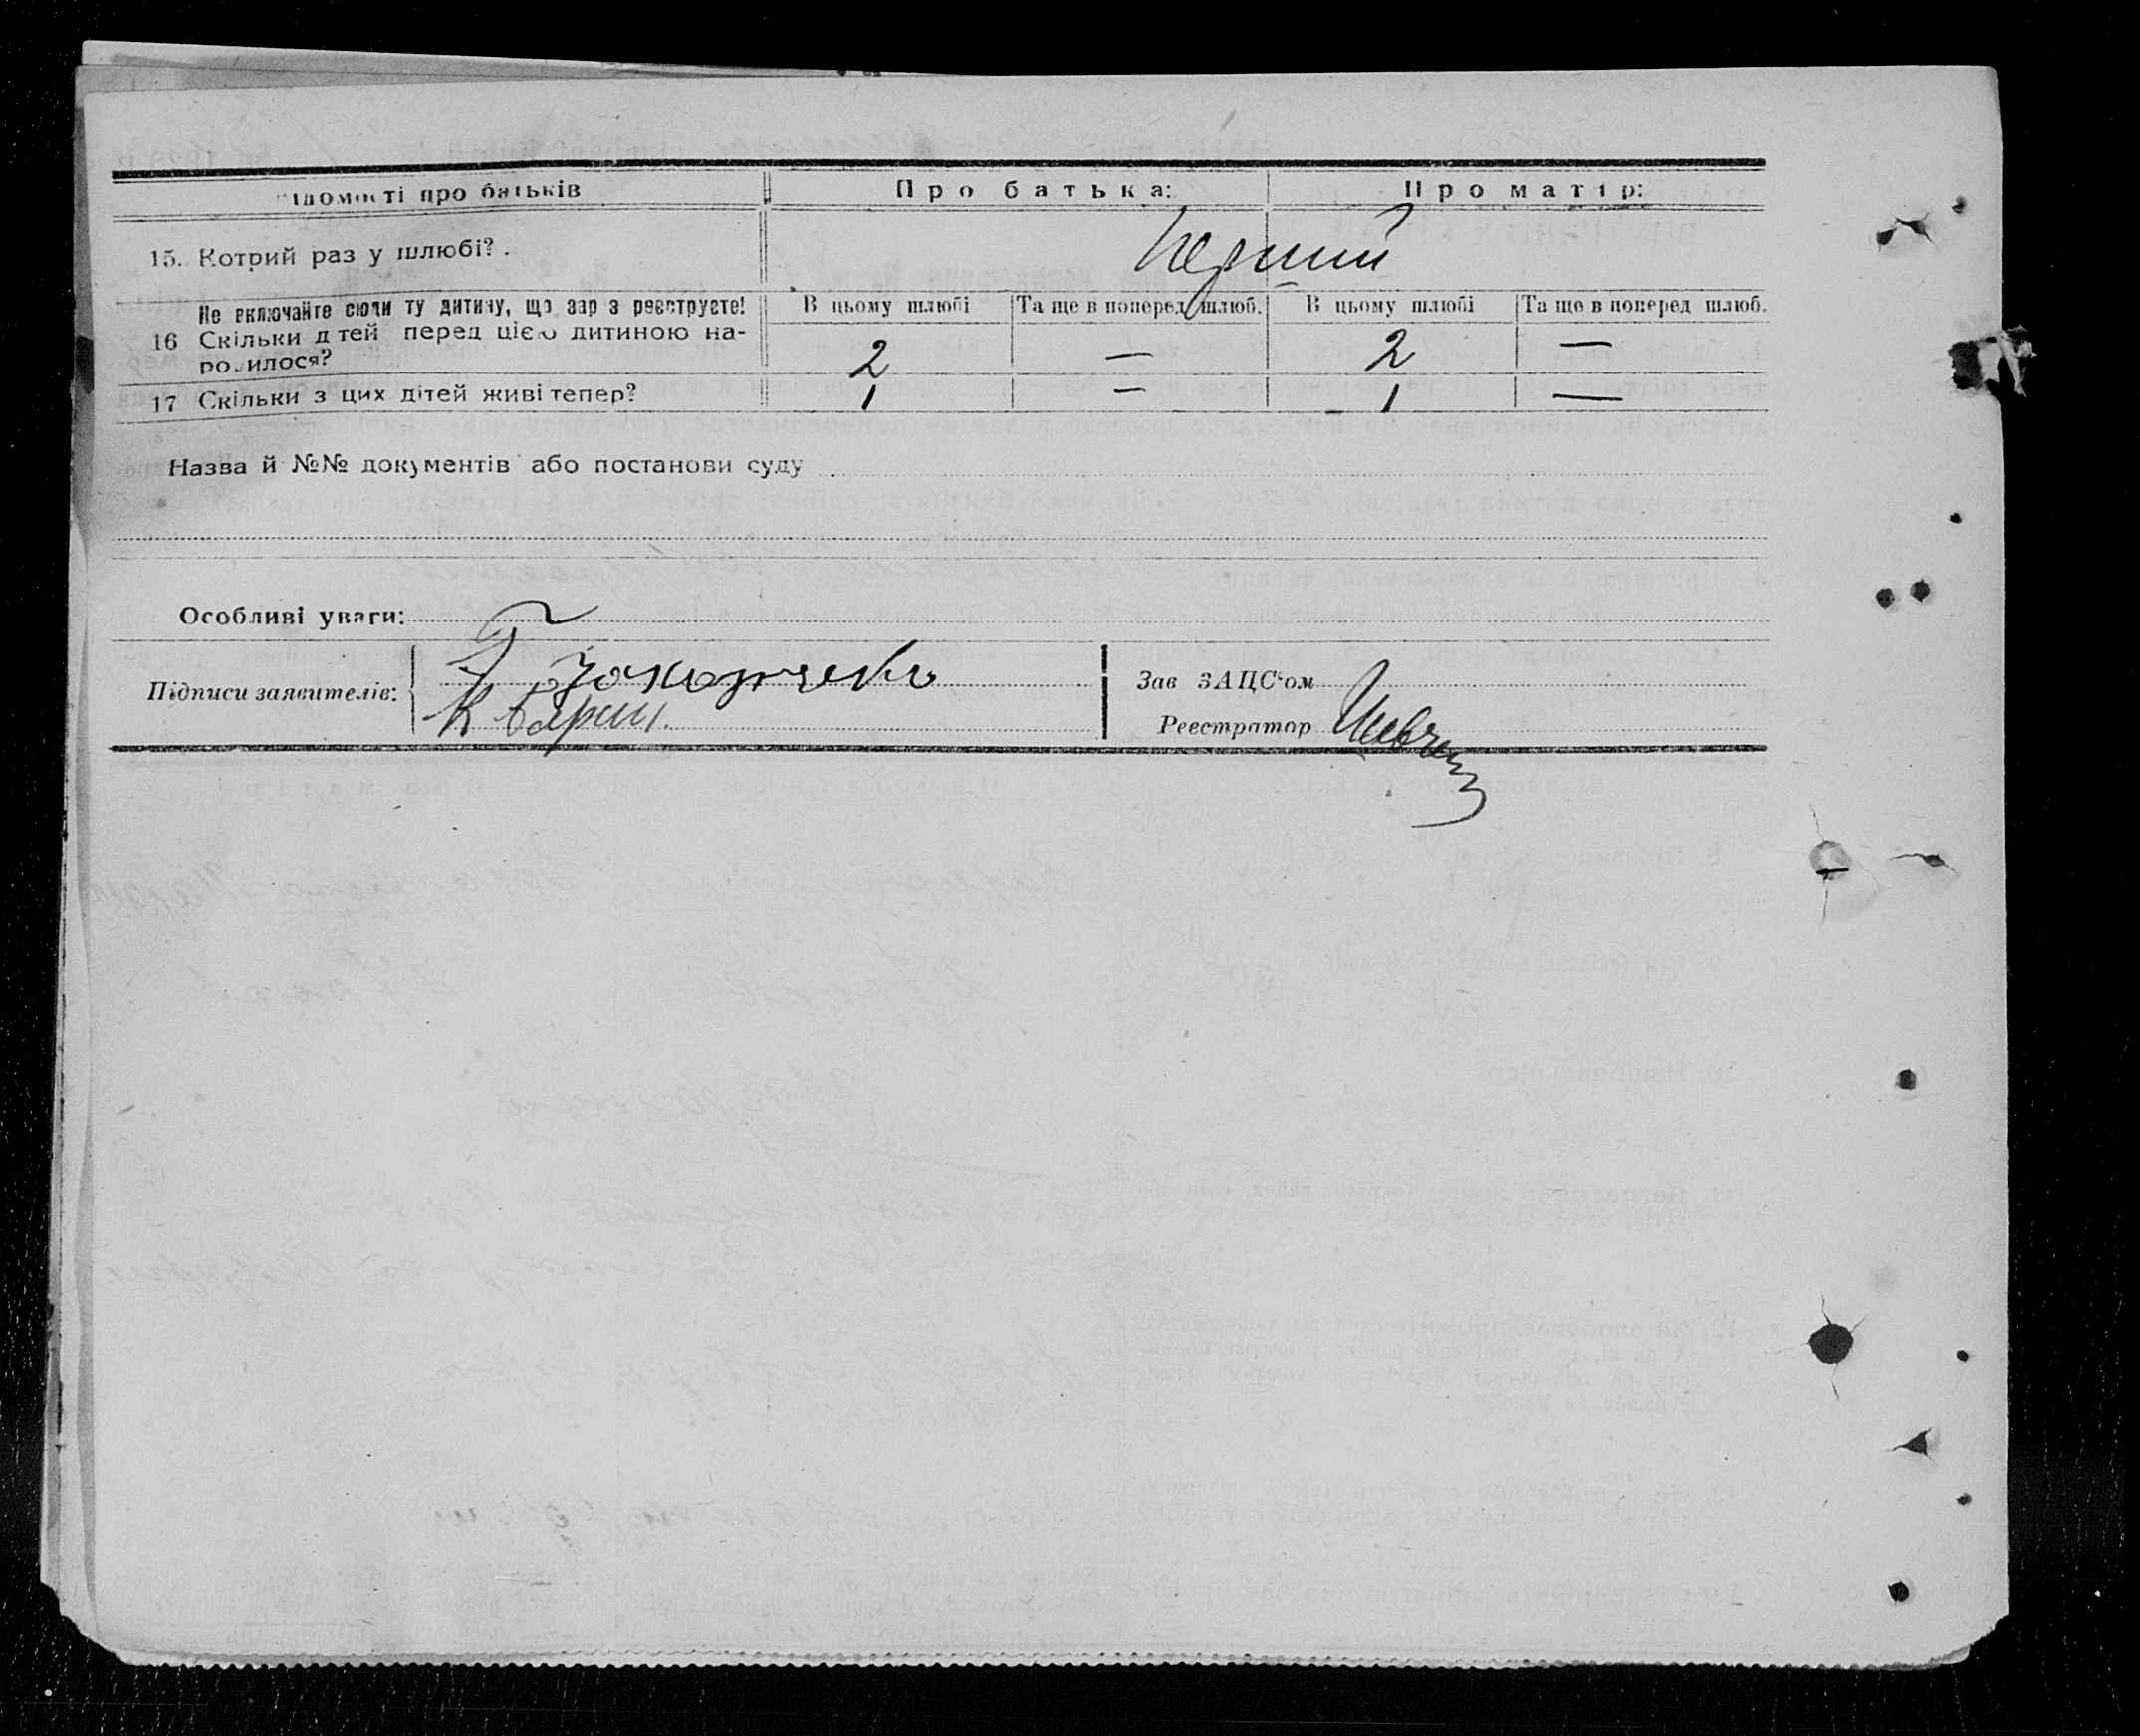 ідомості про батьків Про батька: Про матір:
15. Котрий раз у шлюбі? . Перший
Не включайте сюди ту дитину, що зар з реєструєте! В цьому шлюбі Та ще в поперед шлюб. В цьому шлюбі Та ще в поперед шлюб.
16 Скільки дітей перед цією дитиною на- 2 — 2 —
родилося?
17 Скільки з цих дітей живі тепер? 1 — 1 —
Назва й №№ документів або постанови суду
Особливі уваги:
Підписи заявителів:
Зав ЗАЦС'ом
Реєстратор